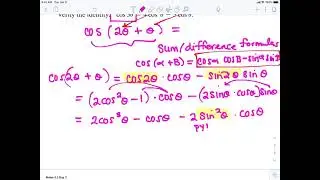 verify the identity: cos3θ = 4cos³θ − 3cosθ.
cos (2θ + θ) =
Sum/difference formulas
cos(α+β) = cosα cosβ − sinα sinβ
cos(2θ + θ) = cos2θ · cosθ − sin2θ sinθ
= (2cos²θ − 1) · cosθ − (2sinθ · cosθ) sinθ
= 2cos³θ − cosθ − 2 sin²θ · cosθ
py!